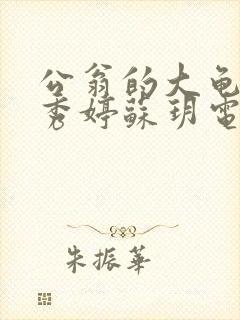 公翁的大龟
秀婷蘇玥電
朱振華